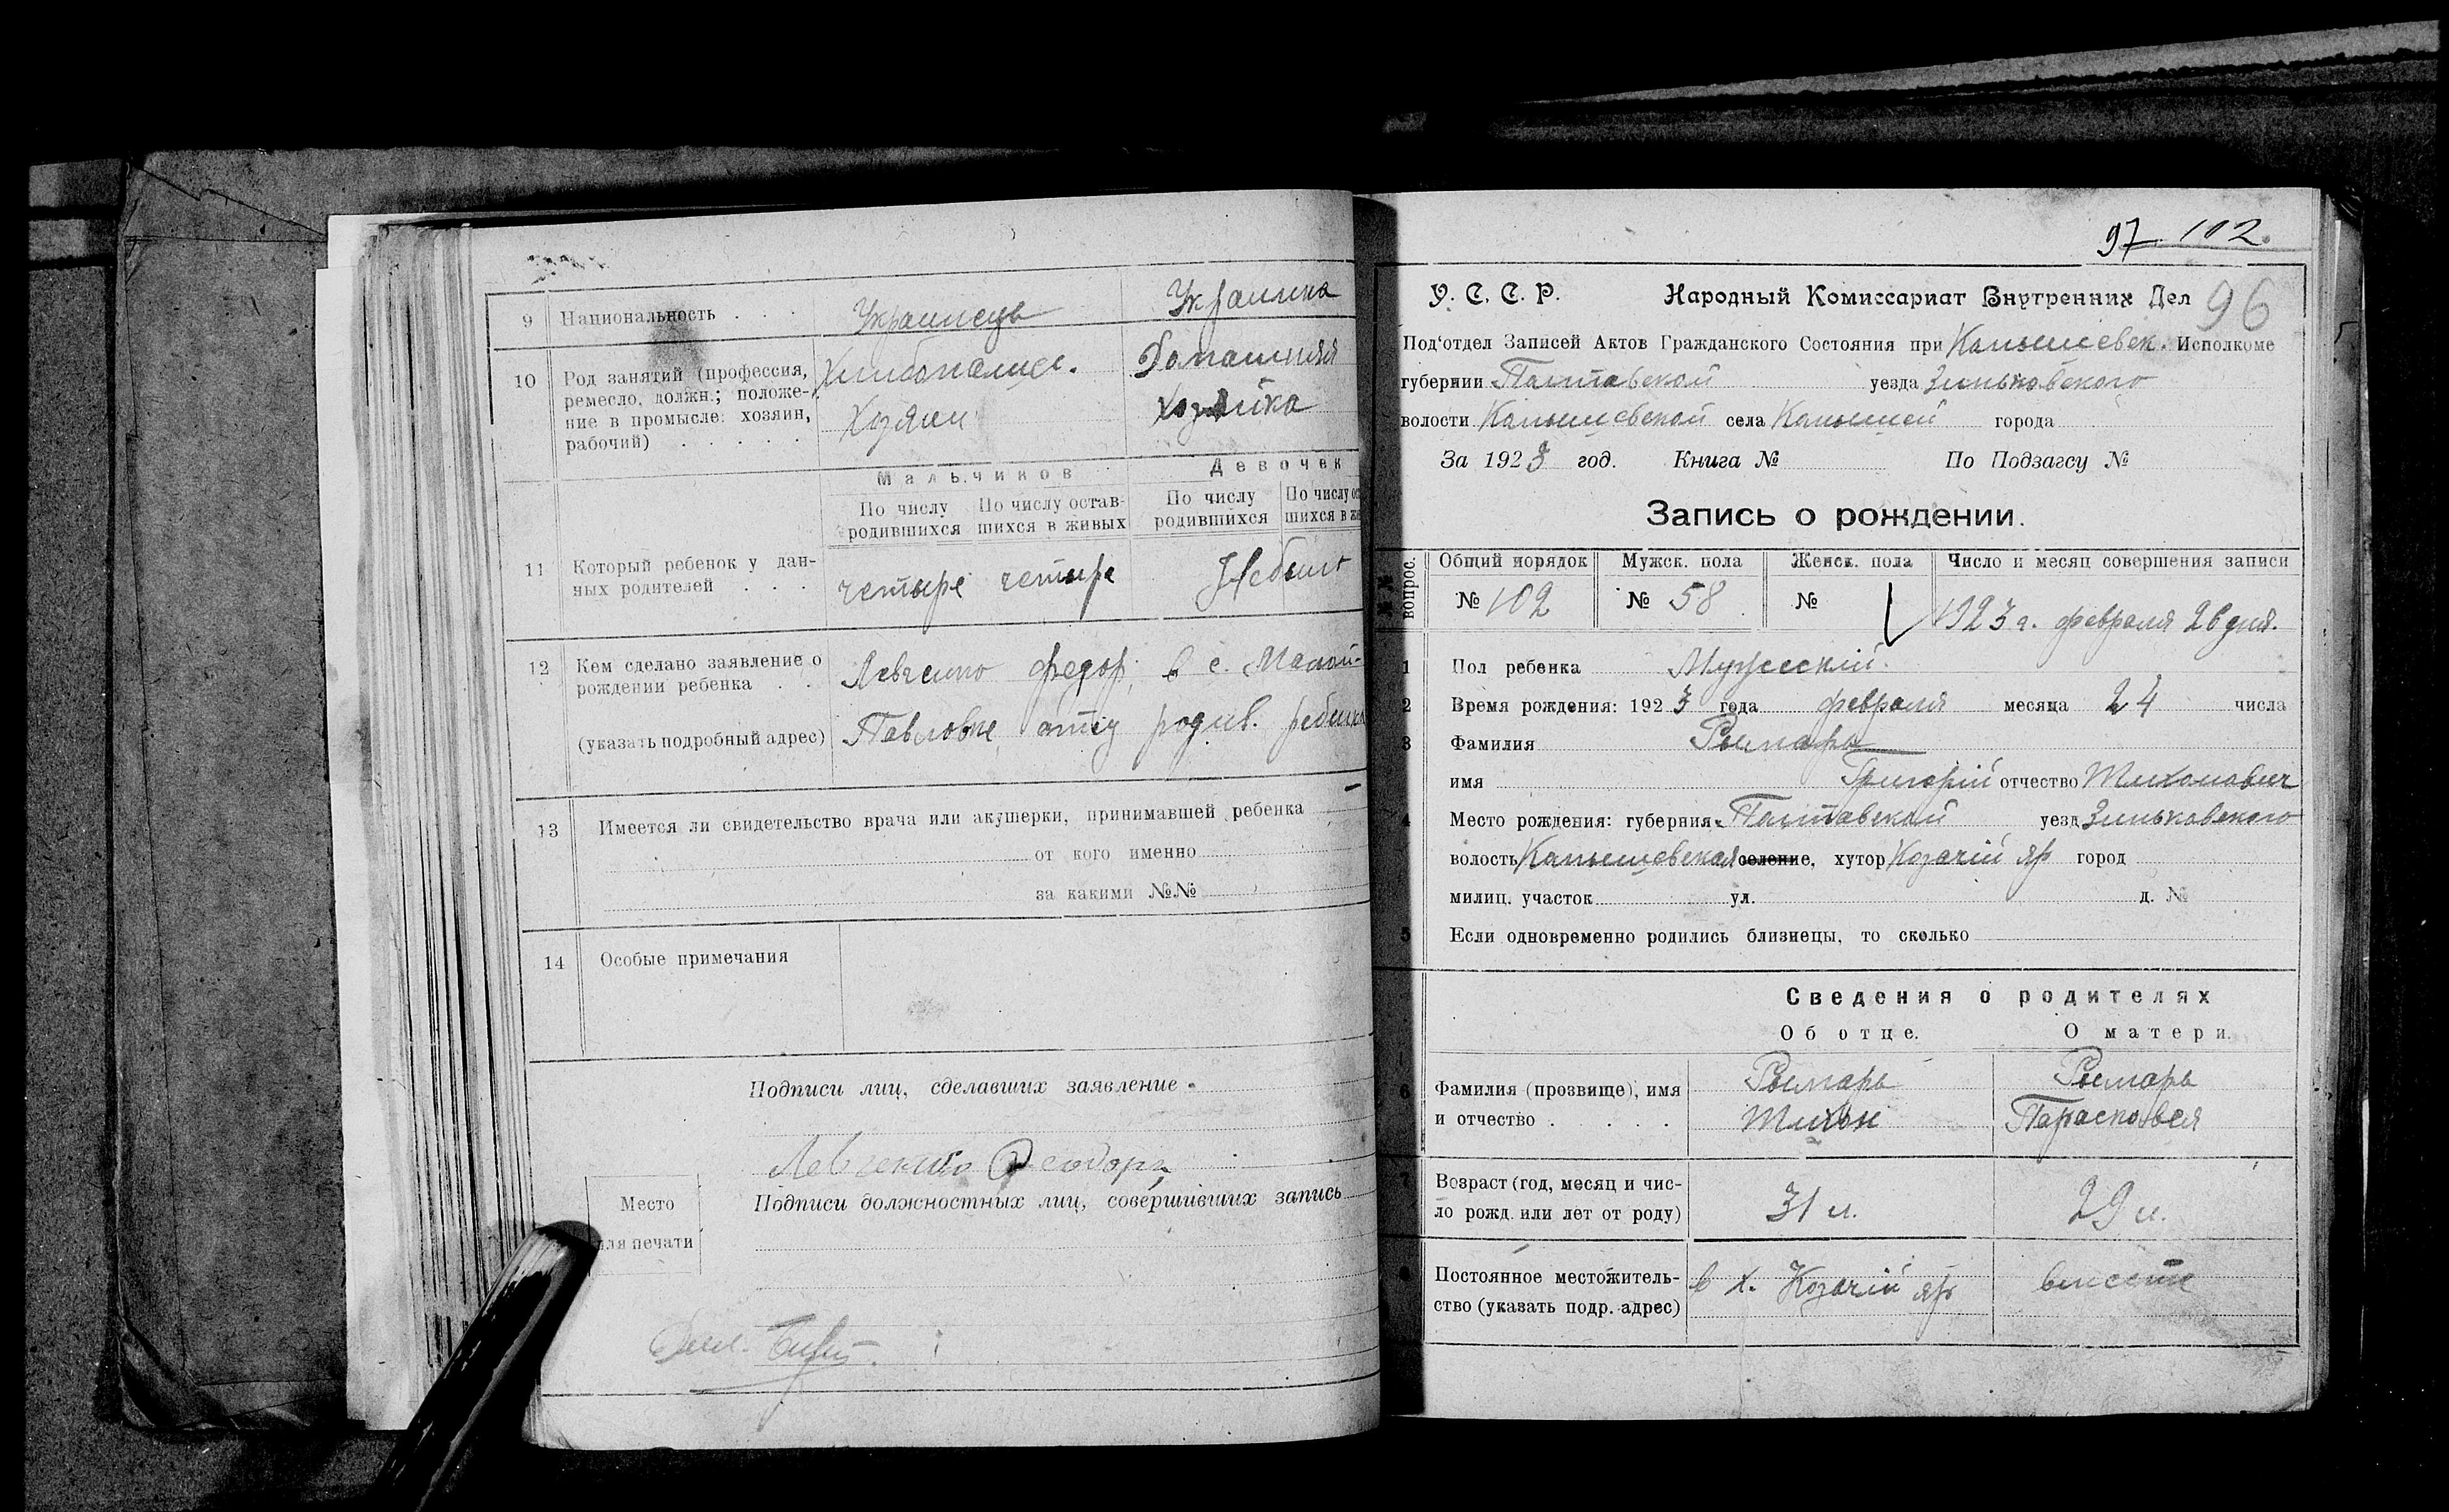 9 Национальность . . . Украинець Украинка
10 Род занятий (профессия, ремесло, должн.; положение в промысле: хозяин, рабочий) . . . . .
Хлибопашес. Домашняя
Хозяин Хозяйка
Мальчиков Девочек
По числу родившихся По числу оставшихся в живых По числу родившихся По числу
11 Который ребенок у данных родителей . . . четыре четыре Небыло
12 Кем сделано заявление о рождении ребенка . . Левченко Федор, в с. Малой-
(указать подробный адрес) Павловке отец родив. ребенка
13 Имеется ли свидетельство врача или акушерки, принимавшей ребенка —
от кого именно
за какими №№
14 Особые примечания
Подписи лиц, сделавших заявление
Левченко Феодоръ
Место
для печати
Подписи должностных лиц, совершивших запись
97 102
У. С. С. Р. Народный Комиссариат Внутренних Дел 96
Под‘отдел Записей Актов Гражданского Состояния при Исполкоме
губернии Полтавской уезда Зиньковского
волости села города
За 1923 год. Книга № По Подзагсу №
Запись о рождении.
№№ вопрос. Общий порядок Мужск. пола Женск. пола Число и месяц совершения записи
№ 102 № 58 № 1923 г. февраля 26 дня.
1 Пол ребенка Мужеский.
2 Время рождения: 1923 года февраля месяца 24 числа
3 Фамилия Рымарь
имя Григорій отчество Тихонович
4 Место рождения: губерния Полтавской уезд Зиньковского
волость селение, хутор Козачій яр город
милиц. участок ул. д. №
5 Если одновременно родились близнецы, то сколько
Сведения о родителях
Об отце. О матери.
6 Фамилия (прозвище), имя Рымарь Рымарь
и отчество . . . . . Тихон Парасковея
7 Возраст (год, месяц и число рожд. или лет от роду) 31 л. 29 л.
8 Постоянное местожительство (указать подр. адрес) в х. Козачій яр вместе